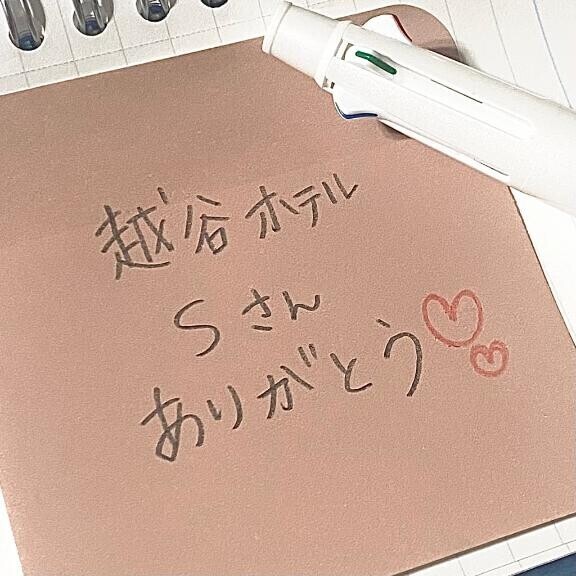 越谷ホテル
Sさん
ありがとう